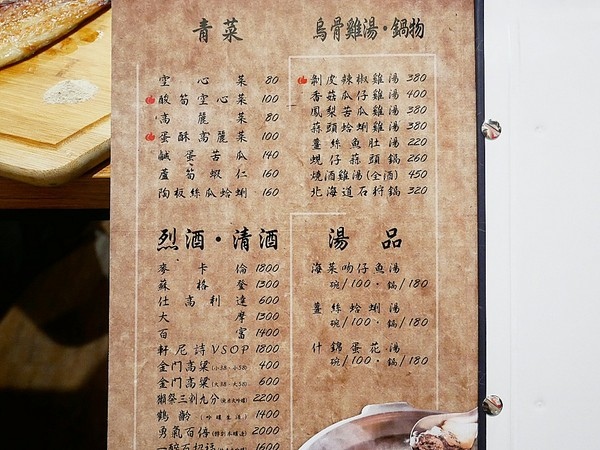 青菜
空心菜 80
酸筍空心菜 100
高麗菜 80
蛋酥高麗菜 100
鹹蛋苦瓜 140
蘆筍蝦仁 160
陶板絲瓜蛤蜊 160
烏骨雞湯・鍋物
剝皮辣椒雞湯 380
香菇瓜仔雞湯 400
鳳梨苦瓜雞湯 380
蒜頭蛤蜊雞湯 380
薑絲魚肚湯 220
蜆仔蒜頭鍋 260
燒酒雞湯(全酒) 450
北海道石狩鍋 320
烈酒・清酒
麥卡倫 1800
蘇格登 1300
仕高利達 600
大摩 1300
百富 1400
軒尼詩VSOP 1800
金門高粱(小58.小38) 400
金門高粱(大38.大58) 600
獺祭三割九分 2200
鶴齡 1400
勇氣百倍 2000
1600
湯品
海菜吻仔魚湯
碗/100・鍋/180
薑絲蛤蜊湯
碗/100・鍋/180
什錦蛋花湯
碗/100・鍋/180